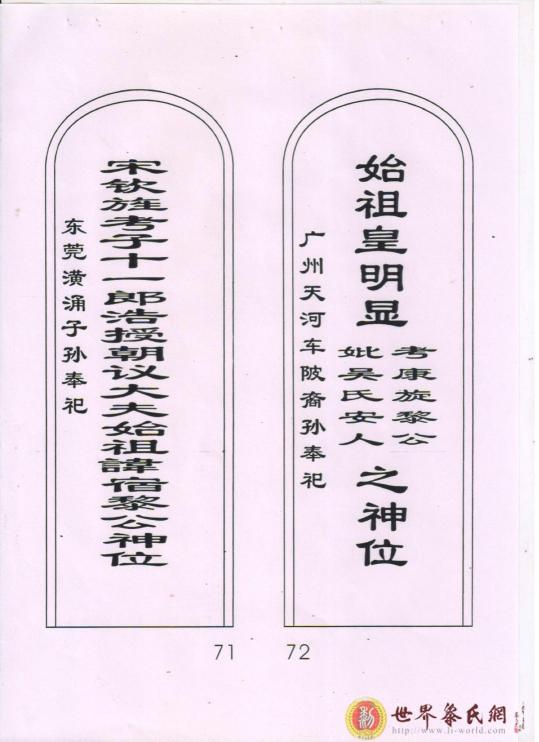 始祖皇明显
考康旋黎公
妣吴氏安人
之神位
广州天河车陂裔孙奉祀
宋钦旌孝子十一郎浩授朝议大夫始祖諱宿黎公神位
东莞潢涌子孙奉祀
71 72
世界黎氏網
http://www.li-world.com